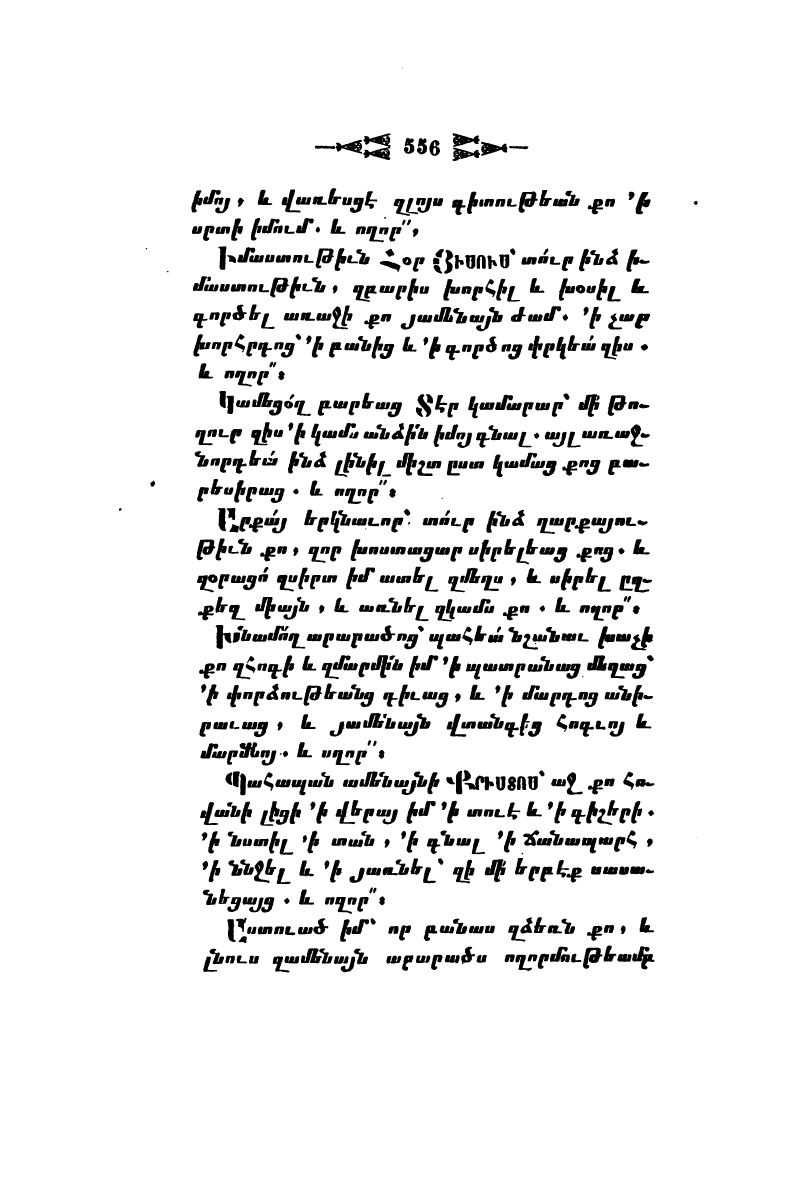 556
իմոյ, և վառեսցէ զլոյս գիտութեան քո ՚ի
սրտի իմում. և ողոր՛՛,
Իմաստութիւն Հօր ՅԻՍՈՒՍ՝ տո՛ւր ինձ ի-
մաստութիւն, զբարիս խորհիլ և խօսիլ և
գործել առաջի քո յամենայն ժամ. ՚ի չար
խորհրդոց՝ ՚ի բանից և ՚ի գործոց փրկեա՛ զիս.
և ողոր՛՛։
Կամեցօ՛ղ բարեաց Տէր կամարար՝ մի՛ թո-
ղուր զիս ՚ի կամս անձին իմոյ գնալ. այլ առաջ-
նորդեա՛ ինձ լինիլ միշտ ըստ կամաց քոց բա-
րեսիրաց. և ողոր՛՛։
Արքա՛յ երկնաւոր՝ տո՛ւր ինձ զարքայու-
թիւն քո, զոր խոստացար սիրելեաց քոց. և
զօրացո՛ զսիրտ իմ ատել զմեղս, և սիրել ըզ-
քեզ միայն, և առնել զկամս քո. և ողոր՛՛։
Խնամո՛ղ արարածոց՝ պահեա՛ նշանաւ խաչի
քո զհոգի և զմարմին իմ ՚ի պատրանաց մեղաց՝
՚ի փորձութեանց դիւաց, և ՚ի մարդոց անի-
րաւաց, և յամենայն վտանգից հոգւոյ և
մարմնոյ. և ողոր՛՛։
Պահապան ամենայնի ՔՐԻՍՏՈՍ՝ աջ քո հո-
վանի լիցի ՚ի վերայ իմ ՚ի տուէ և ՚ի գիշերի.
՚ի նստիլ ՚ի տան, ՚ի գնալ ՚ի ճանապարհ,
՚ի ննջել և ՚ի յառնել՝ զի մի՛ երբէք սասա-
նեցայց. և ողոր՛՛։
Աստուած իմ՝ որ բանաս զձեռն քո, և
լնուս զամենայն արարածս ողորմութեամբ